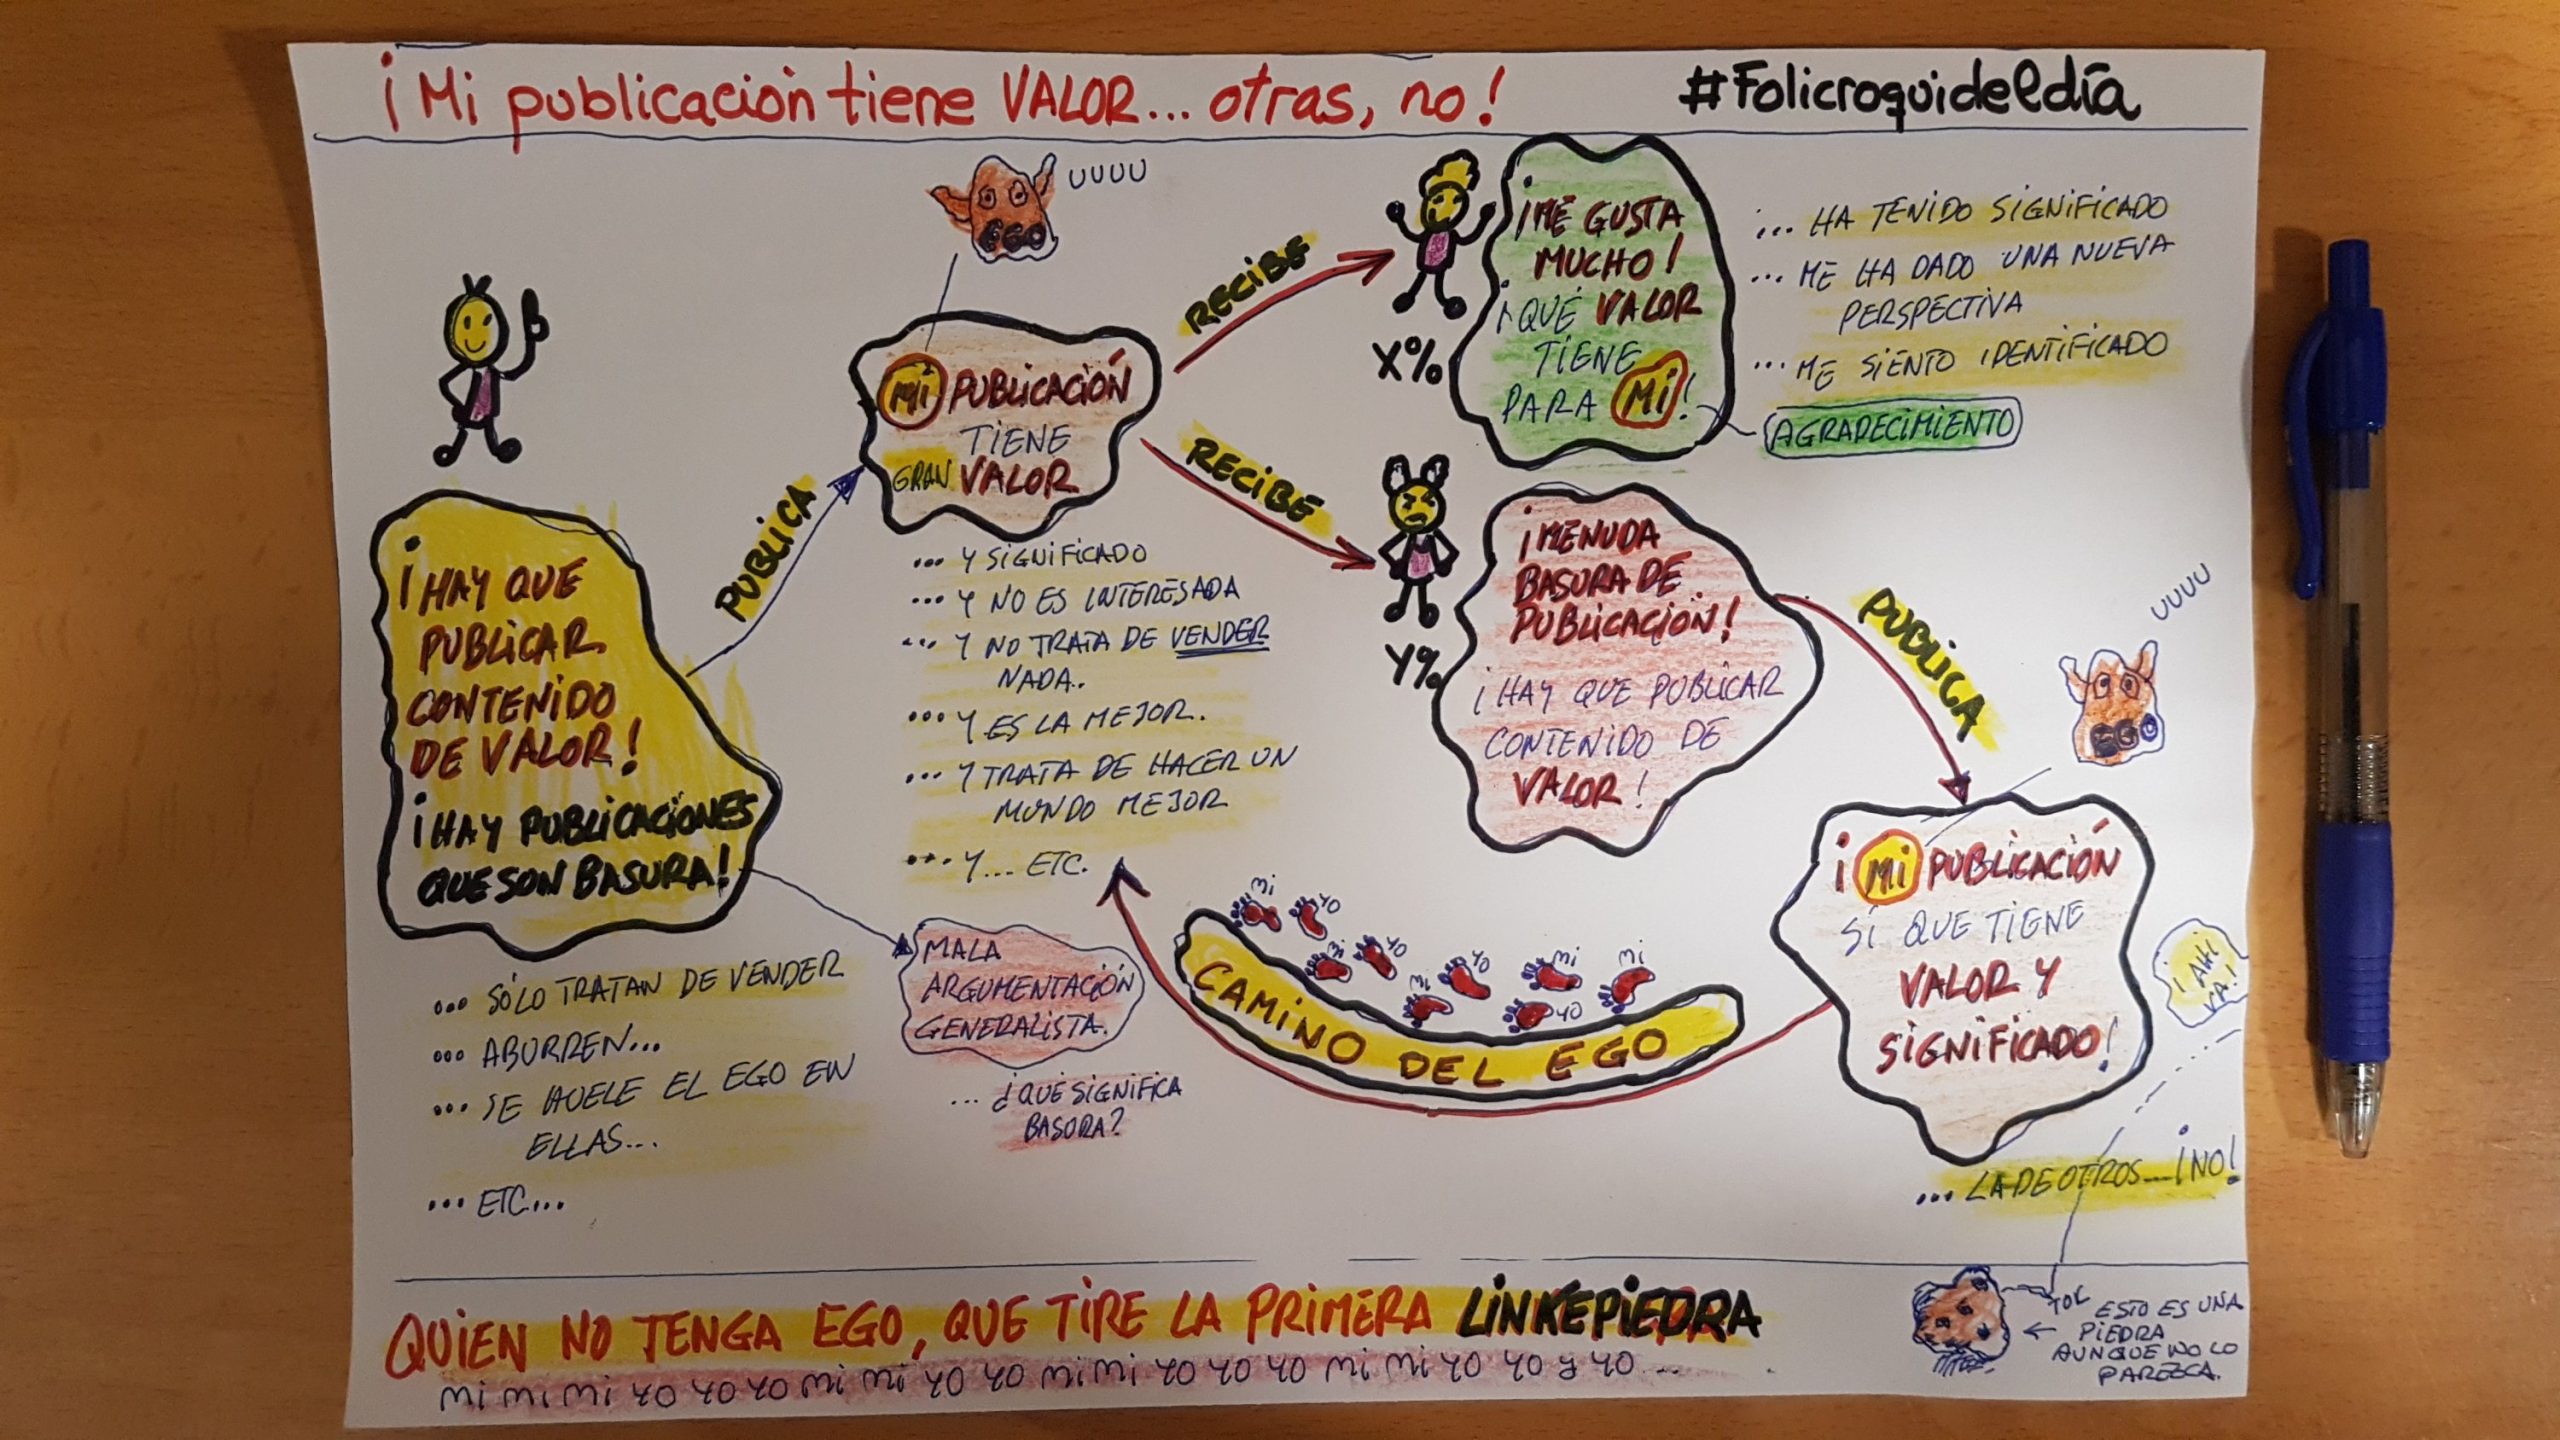 ¡Mi publicación tiene VALOR... otras, no!
#Folicroquideldía
UUUU
EGO
¡HAY QUE
PUBLICAR
CONTENIDO
DE VALOR!
¡HAY PUBLICACIONES
QUE SON BASURA!
... SÓLO TRATAN DE VENDER
... ABURREN...
... SE HUELE EL EGO EN
ELLAS...
... ETC...
MALA
ARGUMENTACIÓN
GENERALISTA.
... ¿QUÉ SIGNIFICA
BASURA?
PUBLICA
MI PUBLICACIÓN
TIENE
GRAN VALOR
... Y SIGNIFICADO
... Y NO ES INTERESADA
... Y NO TRATA DE VENDER
NADA..
... Y ES LA MEJOR.
... Y TRATA DE HACER UN
MUNDO MEJOR
... Y... ETC.
RECIBE
X%
¡ME GUSTA
MUCHO!
¡QUÉ VALOR
TIENE
PARA MI!
... HA TENIDO SIGNIFICADO
... ME HA DADO UNA NUEVA
PERSPECTIVA
... ME SIENTO IDENTIFICADO
AGRADECIMIENTO
RECIBE
Y%
¡MENUDA
BASURA DE
PUBLICACIÓN!
¡HAY QUE PUBLICAR
CONTENIDO DE
VALOR!
PUBLICA
UUUU
EGO
¡MI PUBLICACIÓN
SÍ QUE TIENE
VALOR Y
SIGNIFICADO!
¡AHÍ
VA!
... LA DE OTROS...¡NO!
mi yo mi yo mi yo mi yo mi
CAMINO DEL EGO
QUIEN NO TENGA EGO, QUE TIRE LA PRIMERA LINKEPIEDRA
mi mi mi yo yo yo mi mi yo yo mi mi yo yo yo mi mi yo yo y yo ...
TOC
ESTO ES UNA
PIEDRA
AUNQUE NO LO
PAREZCA.